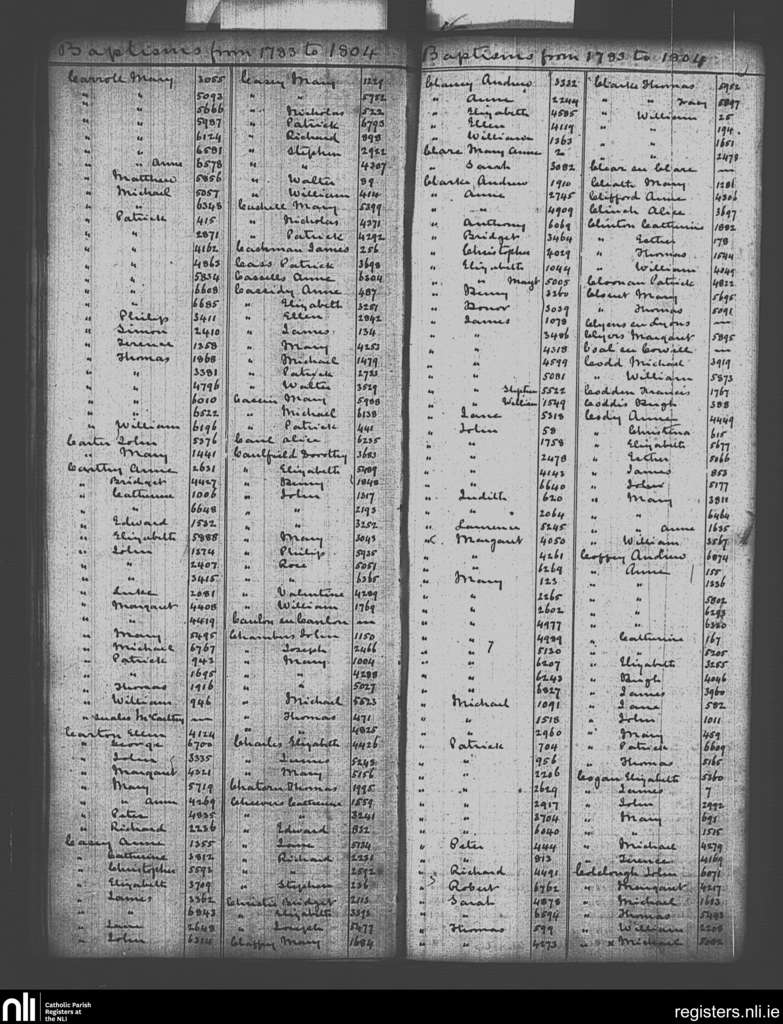 Baptisms from 1783 to 1804
Carroll Mary 3055
" " 5093
" " 5666
" " 5987
" " 6124
" " 6581
" " Anne 6578
" Matthew 5856
" Michael 5057
" " 6348
" Patrick 415
" " 2871
" " 4162
" " 4863
" " 5834
" " 6608
" " 6685
" Philip 3411
" Simon 2410
" Terence 1258
" Thomas 1868
" " 3381
" " 4796
" " 6010
" " 6522
" William 6196
Carter John 5376
" Mary 1441
Carthy Anne 2631
" Bridget 4427
" Catherine 1006
" " 6648
" Edward 1532
" Elizabeth 5885
" John 1374
" " 2407
" " 3415
" Luke 2081
" Margaret 4408
" " 4419
" Mary 5495
" Michael 6767
" Patrick 942
" " 1695
" Thomas 1916
" William 946
" McCarthy —
Carton Ellen 4124
" George 6700
" John 3335
" Margaret 4321
" Mary 5719
" " Anne 4269
" Peter 4835
" Richard 2236
Casey Anne 1355
" Catherine 3812
" Christopher 5592
" Elizabeth 3709
" James 3362
" " 6843
" Jane 2648
" John
Casey Mary 1229
" " 5752
" Nicholas 522
" Patrick 6793
" Richard 898
" Stephen 2922
" " 4307
" Walter 89
" William 414
Cashell Mary 5299
" Nicholas 4371
" Patrick 4292
Cashman James 256
Cass Patrick 3698
Cassells Anne 6304
Cassidy Anne 487
" Elizabeth 3251
" Ellen 2842
" James 134
" Mary 4253
" Michael 1479
" Patrick 2723
" Walter 3529
Mary 5988
" Michael 6138
" Patrick 441
Alice 6235
Caulfield Dorothy 3683
" Elizabeth 5409
" Henry 1848
" John 1317
" " 2193
" " 3252
" Mary 3043
" Philip 5935
" Rose 5051
" " 6365
" Valentine 4289
" William 1769
—
Chambers John 1150
" Joseph 2466
" Mary 1004
" " 4288
" " 5027
" Michael 5523
" Thomas 471
" " 4825
Charles Elizabeth 4426
" James 5243
" Mary 5156
Thomas 1995
Catherine 1559
" " 3241
" Edward 832
" Jane 5134
" Richard 2231
" " 2592
" Stephen 236
Christie Bridget 2113
" Elizabeth 3395
" Joseph 5477
Mary 1684
Baptisms from 1783 to 1804
Andrew 3332
" Anne 2244
" Elizabeth 4585
" Ellen 4119
" William 1363
Clare Mary Anne 2
" Sarah 3082
Clarke Andrew 1910
" Anne 2745
" " 4909
" Anthony 6069
" Bridget 3464
" Christopher 4029
" Elizabeth 1044
" " Mary 5005
" Henry 3260
" Honor 3039
" James 1078
" " 3486
" " 4318
" " 4599
" " 5081
" " Stephen 5522
" " William 1549
" Jane 5318
" John 58
" " 1758
" " 2478
" " 4143
" " 6640
" Judith 620
" " 2064
" Laurence 5245
" Margaret 4050
" " 4261
" " 6269
" Mary 123
" " 2265
" " 2602
" " 4977
" " 4989
" " 5120
" " 6207
" " 6243
" " 6827
" Michael 1091
" " 1518
" " 2960
" Patrick 704
" " 956
" " 2206
" " 2629
" " 2917
" " 3704
" " 6040
" Peter 444
" " 813
" Richard 4491
" Robert 6762
" Sarah 4878
" " 6594
" Thomas 599
" " 4273
Clarke Thomas 5952
" " 5897
" William 25
" " 194
" " 1651
" " 2478
Clear en Clare —
Mary 1286
Clifford Anne 4306
Clinch Alice 3697
Clinton Catherine 1882
" Esther 178
" Thomas 1544
" William 4049
Cloonan Patrick 4822
Mary 5695
" Thomas 5091
Clyens en Lyons —
Clyers Margaret 5895
—
Codd Michael 3919
" William 5873
Codden Francis 1767
Coddis Hugh 388
Cody Anne 4449
" Christina 615
" Elizabeth 5677
" Esther 5066
" James 853
" John 5177
" Mary 3811
" " 6464
" " Anne 1635
" William 3567
Coffey Andrew 6874
" Anne 155
" " 1336
" " 5802
" " 6293
" " 6320
" Catherine 167
" " 5205
" Elizabeth 3255
" Hugh 4046
" James 3960
" Jane 582
" John 1011
" Mary 459
" Patrick 6609
" Thomas 5165
Cogan Elizabeth 5260
" James 7
" John 2992
" Mary 691
" " 1515
" Michael 4279
" Terence 4169
Colclough John 6071
" Margaret 4217
" Michael 1613
" Thomas 5483
" William 2208
" Michael 5082
nli
Catholic Parish
Registers at
the NLI
registers.nli.ie